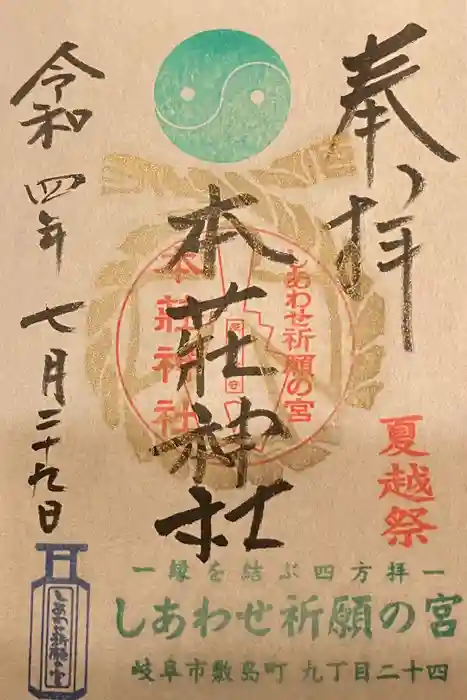 奉拝
本荘神社
本荘神社
しあわせ祈願の宮
夏越祭
令和四年七月二十九日
しあわせ祈願の宮
一縁を結ぶ四方拝一
しあわせ祈願の宮
岐阜市敷島町 九丁目二十四